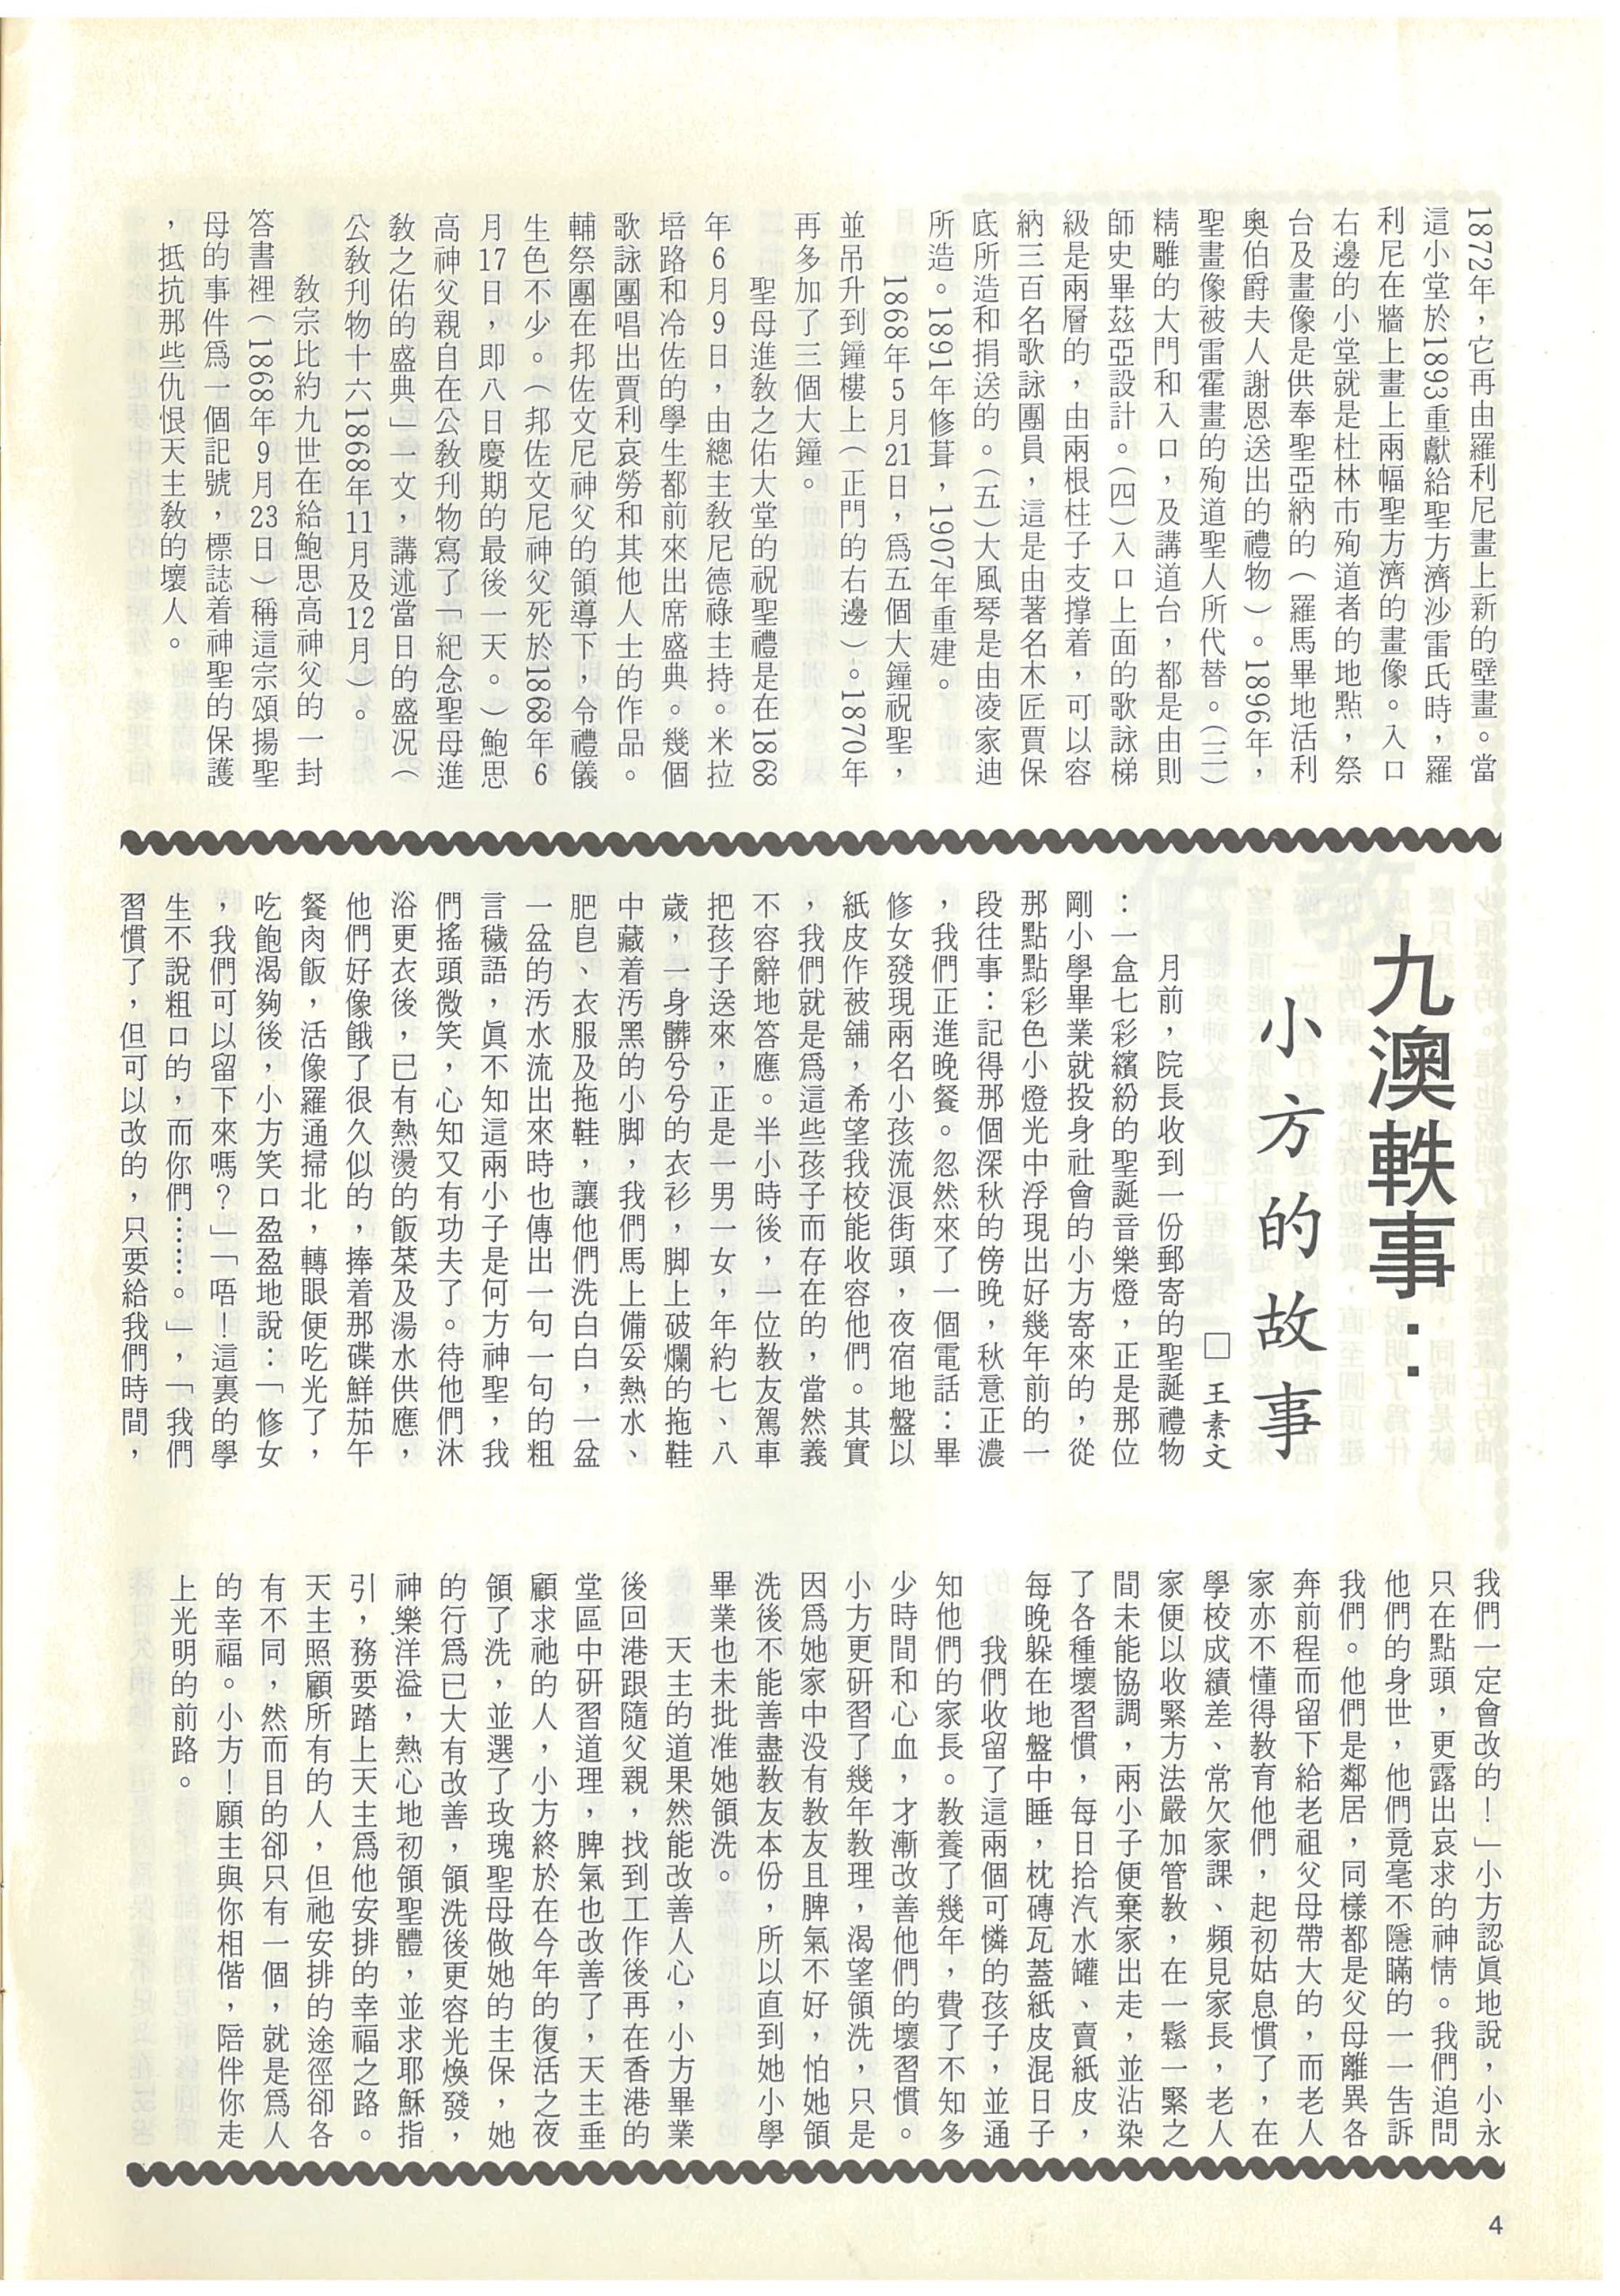 1872年，它再由羅利尼畫上新的壁畫。當
這小堂於1893重獻給聖方濟沙雷氏時，羅
利尼在牆上畫上兩幅聖方濟的畫像。入口
右邊的小堂就是杜林市殉道者的地點，祭
台及畫像是供奉聖亞納的（羅馬畢地活利
奧伯爵夫人謝恩送出的禮物）。1896年，
聖畫像被雷霍畫的殉道聖人所代替。（三）
精雕的大門和入口，及講道台，都是由則
師史畢茲亞設計。（四）入口上面的歌詠梯
級是兩層的，由兩根柱子支撐着，可以容
納三百名歌詠團員，這是由著名木匠賈保
底所造和捐送的。（五）大風琴是由凌家迪
所造。1891年修葺，1907年重建。
1868年5月21日，爲五個大鐘祝聖，
並吊升到鐘樓上（正門的右邊）。1870年
再多加了三個大鐘。
聖母進教之佑大堂的祝聖禮是在1868
年6月9日，由總主教尼德祿主持。米拉
培路和冷佐的學生都前來出席盛典。幾個
歌詠團唱出賈利哀勞和其他人士的作品。
輔祭團在邦佐文尼神父的領導下，令禮儀
生色不少。（邦佐文尼神父死於1868年6
月17日，即八日慶期的最後一天。）鮑思
高神父親自在公教刊物寫了「紀念聖母進
教之佑的盛典」一文，講述當日的盛況（
公教刊物十六1868年11月及12月）。
教宗比約九世在給鮑思高神父的一封
答書裡（1868年9月23日）稱這宗頌揚聖
母的事件爲一個記號，標誌着神聖的保護
，抵抗那些仇恨天主教的壞人。
九澳軼事：
小方的故事
□王素文
月前，院長收到一份郵寄的聖誕禮物
：一盒七彩繽紛的聖誕音樂燈，正是那位
剛小學畢業就投身社會的小方寄來的，從
那點點彩色小燈光中浮現出好幾年前的一
段往事：記得那個深秋的傍晚，秋意正濃
，我們正進晚餐。忽然來了一個電話：畢
修女發現兩名小孩流浪街頭，夜宿地盤以
紙皮作被舖，希望我校能收容他們。其實
，我們就是爲這些孩子而存在的，當然義
不容辭地答應。半小時後，一位教友駕車
把孩子送來，正是一男一女，年約七、八
歲，一身髒兮兮的衣衫，脚上破爛的拖鞋
中藏着污黑的小脚，我們馬上備妥熱水、
肥皀、衣服及拖鞋，讓他們洗白白，一盆
一盆的污水流出來時也傳出一句一句的粗
言穢語，眞不知這兩小子是何方神聖，我
們搖頭微笑，心知又有功夫了。待他們沐
浴更衣後，已有熱燙的飯菜及湯水供應，
他們好像餓了很久似的，捧着那碟鮮茄午
餐肉飯，活像羅通掃北，轉眼便吃光了，
吃飽渴夠後，小方笑口盈盈地說：「修女
，我們可以留下來嗎？」「唔！這裏的學
生不說粗口的，而你們……。」，「我們
習慣了，但可以改的，只要給我們時間，
我們一定會改的！」小方認眞地說，小永
只在點頭，更露出哀求的神情。我們追問
他們的身世，他們竟毫不隱瞞的一一告訴
我們。他們是鄰居，同樣都是父母離異各
奔前程而留下給老祖父母帶大的，而老人
家亦不懂得教育他們，起初姑息慣了，在
學校成績差、常欠家課、頻見家長，老人
家便以收緊方法嚴加管教，在一鬆一緊之
間未能協調，兩小子便棄家出走，並沾染
了各種壞習慣，每日拾汽水罐、賣紙皮，
每晚躲在地盤中睡，枕磚瓦蓋紙皮混日子
我們收留了這兩個可憐的孩子，並通
知他們的家長。教養了幾年，費了不知多
少時間和心血，才漸改善他們的壞習慣。
小方更研習了幾年教理，渴望領洗，只是
因爲她家中没有教友且脾氣不好，怕她領
洗後不能善盡教友本份，所以直到她小學
畢業也未批准她領洗。
天主的道果然能改善人心，小方畢業
後回港跟隨父親，找到工作後再在香港的
堂區中研習道理，脾氣也改善了，天主垂
顧求祂的人，小方終於在今年的復活之夜
領了洗，並選了玫瑰聖母做她的主保，她
的行爲已大有改善，領洗後更容光煥發，
神樂洋溢，熱心地初領聖體，並求耶穌指
引，務要踏上天主爲他安排的幸福之路。
天主照顧所有的人，但祂安排的途徑卻各
有不同，然而目的卻只有一個，就是爲人
的幸福。小方！願主與你相偕，陪伴你走
上光明的前路。
4